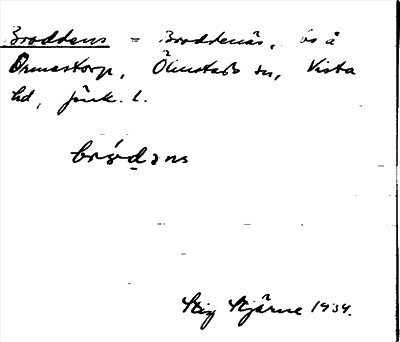 Broddens = Broddenäs, ös å
Ormestorp, Ölmstads sn, Vista
hd, Jönk. l.
bródəns
Stig Stjärne 1934.